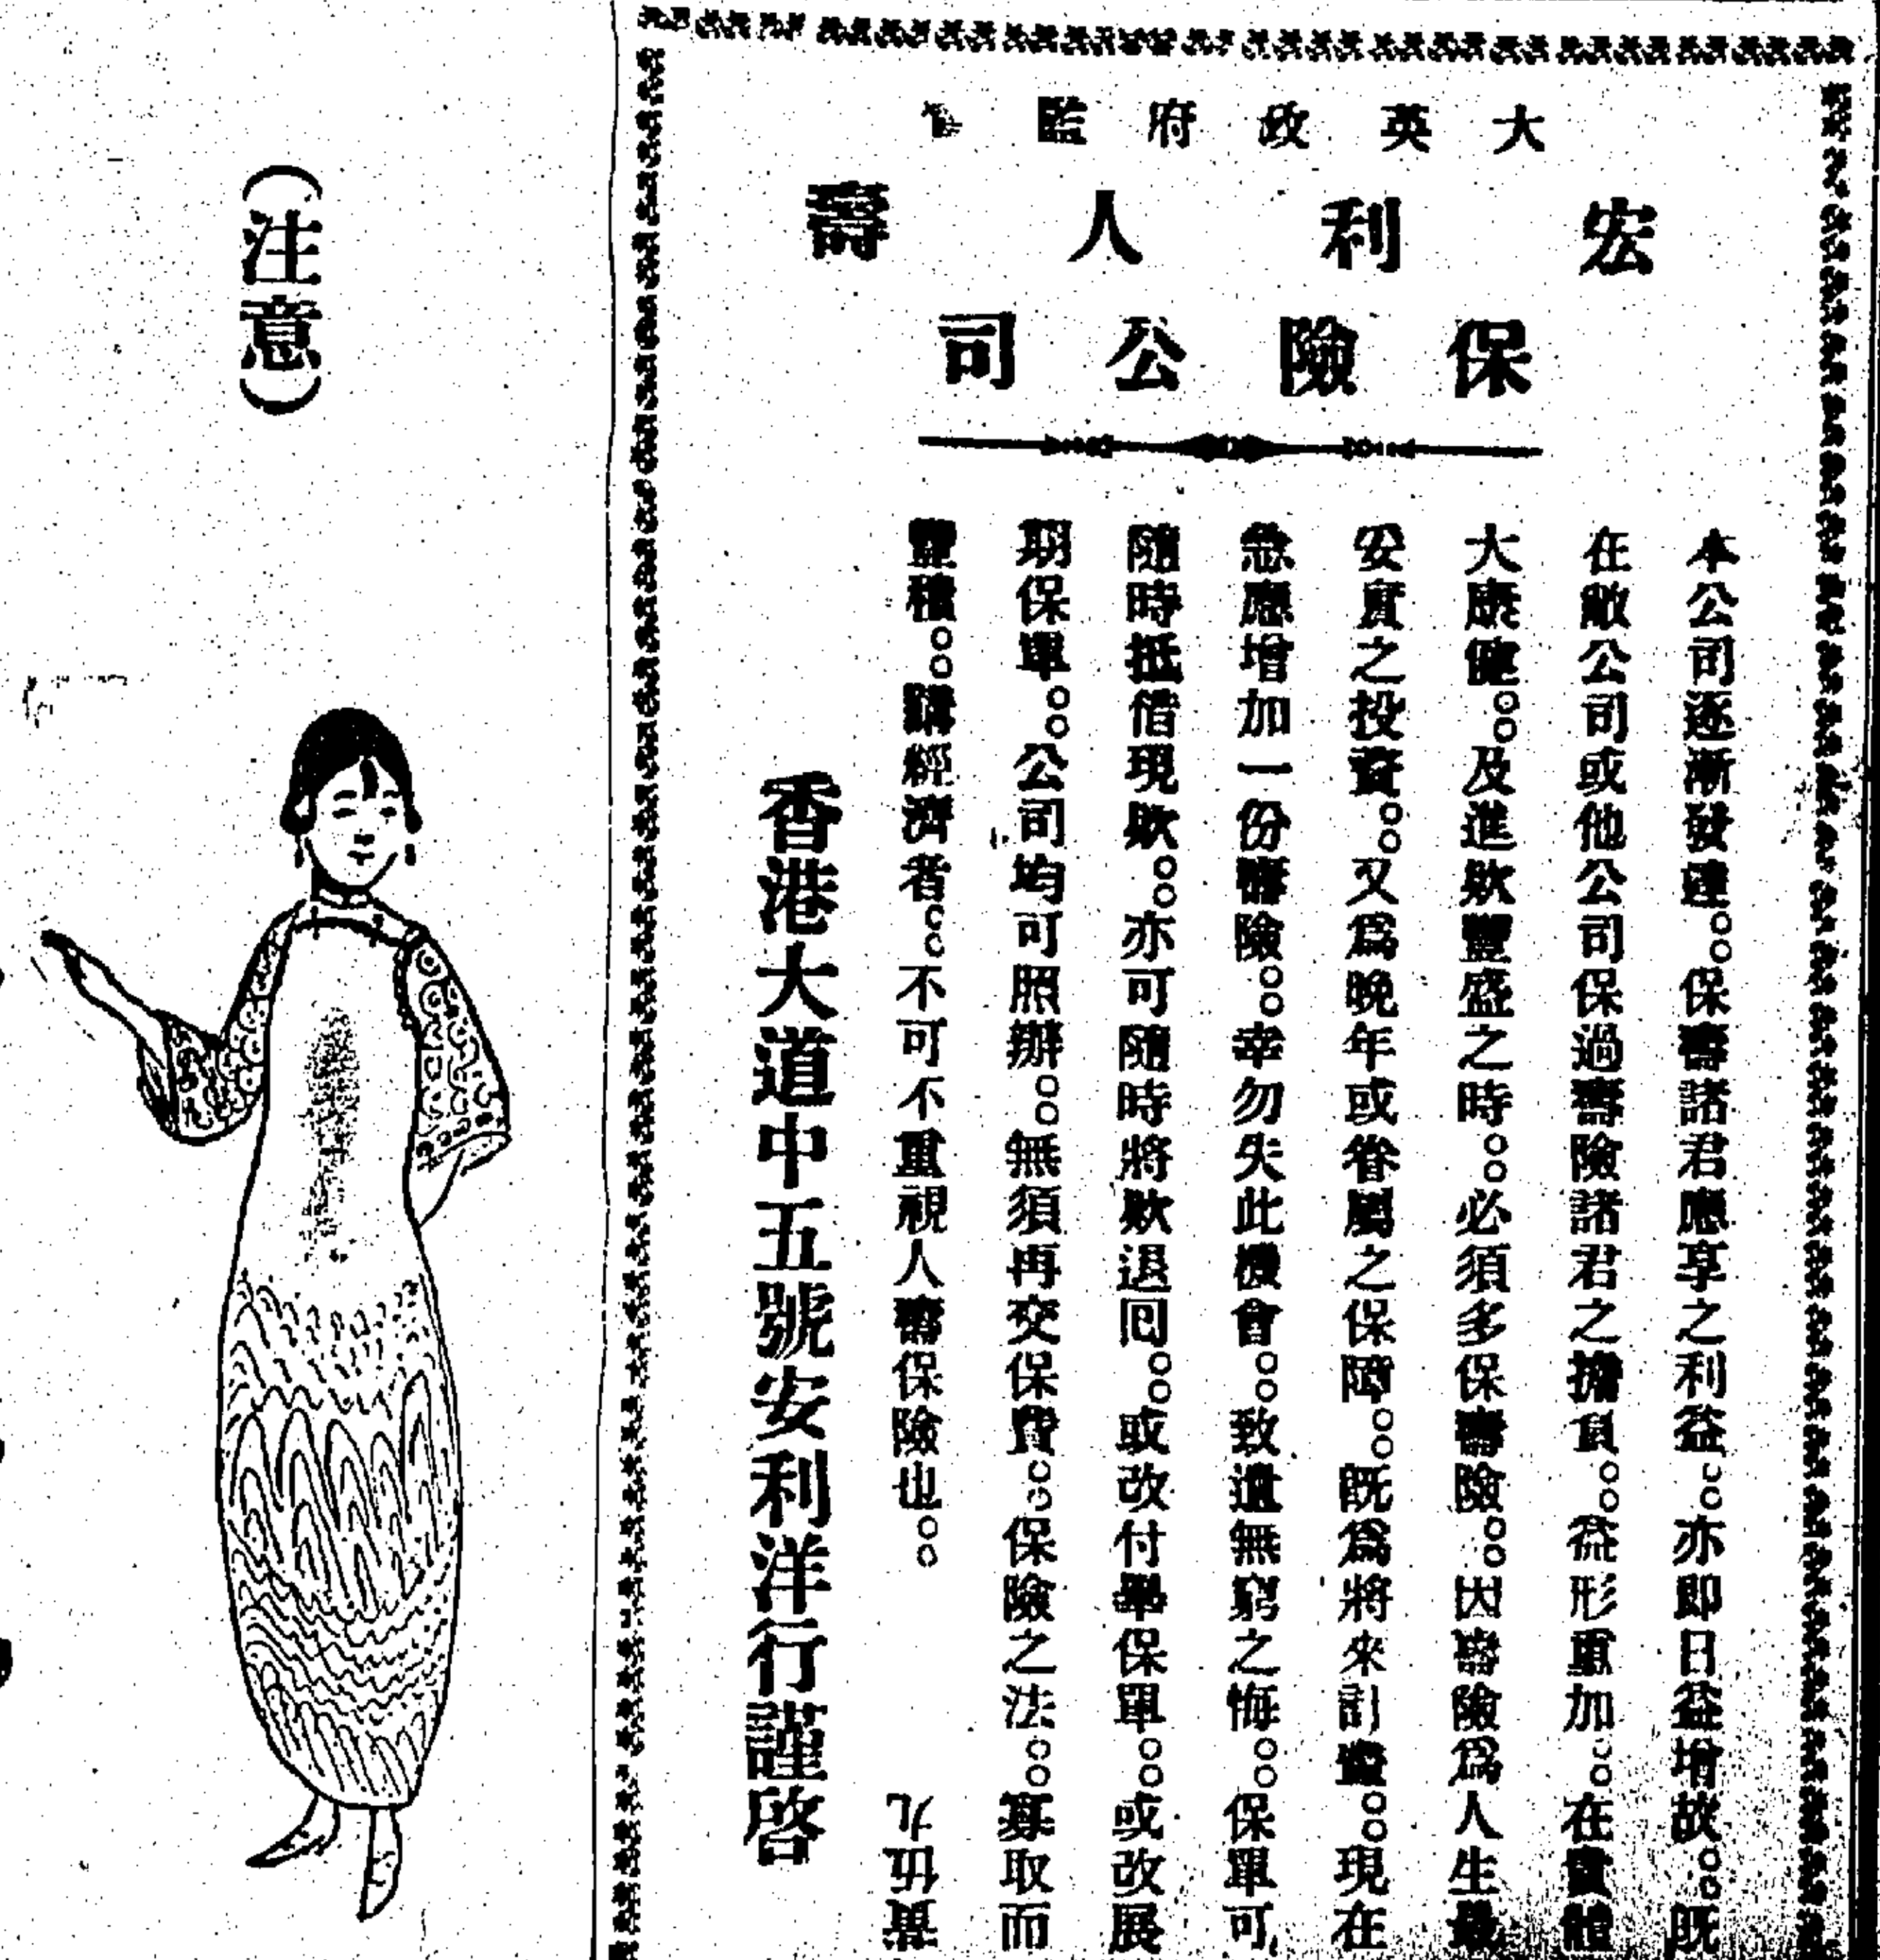 大英政府監
宏利人壽
保險公司
本公司逐漸發達。。保壽諸君應享之利益。。亦即日益增故。。既
在敝公司或他公司保過壽險諸君之擔負。。益形重加。。在實體
大康健。。及進欵豐盛之時。。必須多保壽險。。因壽險爲人生最
妥實之投資。。又爲晚年或眷屬之保障。。既爲將來計畫。。現在
急應增加一份壽險。。幸勿失此機會。。致遺無窮之悔。。保單可
隨時抵借現欵。。亦可隨時將欵退囘。。或改付畢保單。。或改展
期保單。。公司均可照辦。。無須再交保費。。保險之法。。寡取而
豐積。。講經濟者。。不可不重視人壽保險也。。
九伍
香港大道中五號安利洋行謹啓
（注意）